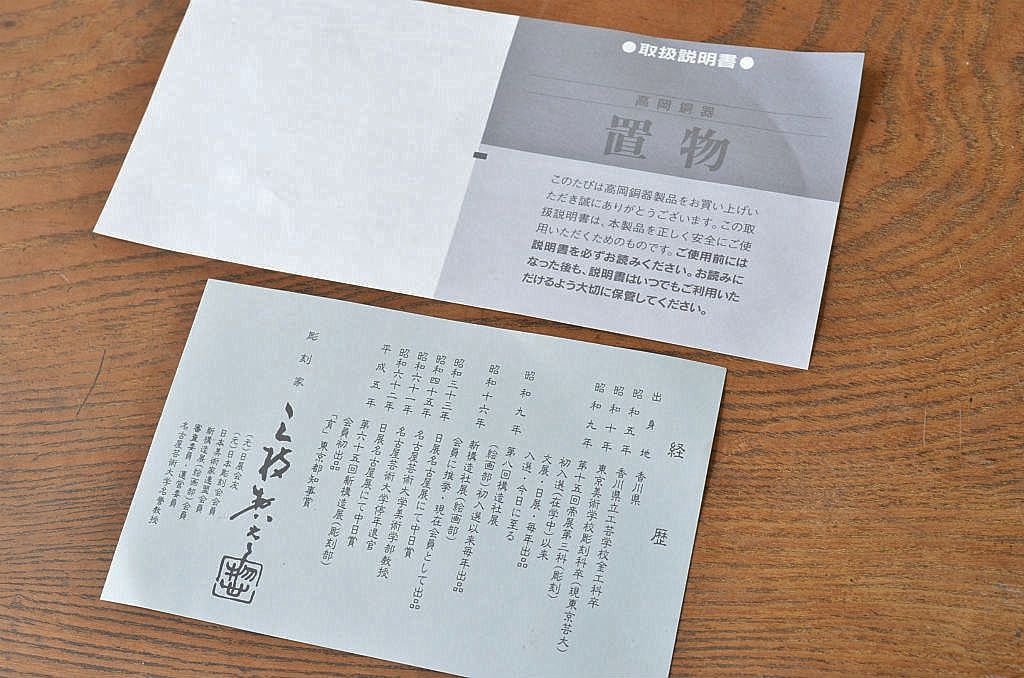 ●取扱説明書●
高岡銅器
置物
このたびは高岡銅器製品をお買い上げい
ただき誠にありがとうございます。この取
扱説明書は、本製品を正しく安全にご使
用いただくためのものです。ご使用前には
説明書を必ずお読みください。お読みに
なった後も、説明書はいつでもご利用いた
だけるよう大切に保管してください。
経歴
出身地 香川県
昭和五年 香川県立工芸学校金工科卒
昭和十年 東京美術学校彫刻科卒(現東京芸大)
昭和九年 第十五回帝展第三科(彫刻)
初入選(在学中)以来
文展・日展・毎年出品
入選・今日に至る
昭和九年 第八回構造社展
(絵画部)初入選以来毎年出品
昭和十六年 新構造社展(絵画部)
会員に推挙・現在会員として出品
昭和三十三年 日展名古屋展にて中日賞
昭和四十五年 名古屋芸術大学美術学部教授
昭和六十一年 名古屋芸術大学停年退官
昭和六十二年 日展名古屋展にて中日賞
平成五年 第六十五回新構造展(彫刻部)
会員初出品
「貢」東京都知事賞
彫刻家
(元)日展会友
(元)日本彫刻会会員
日本美術家連盟会員
新構造展(絵画部)会員
審査委員・運営委員
名古屋芸術大学名誉教授